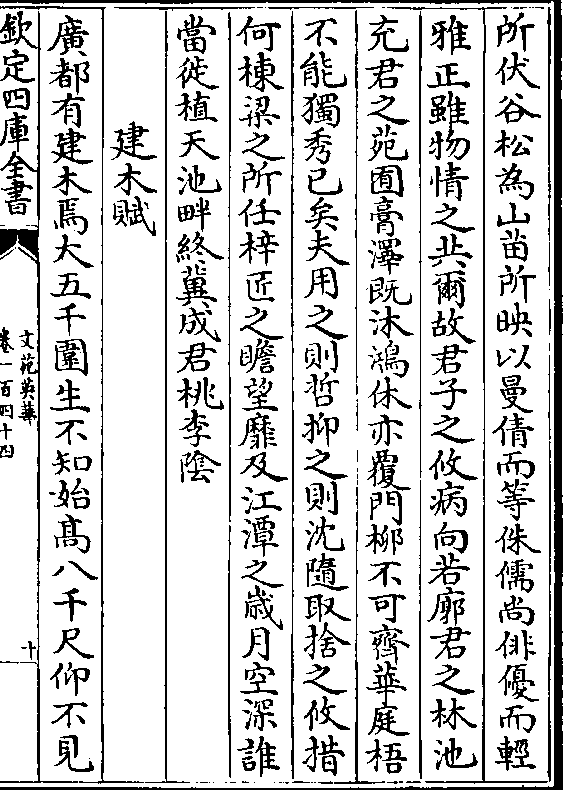 所伏谷松為山苗所映以曼倩而等侏儒尚俳優而輕
雅正雖物情之共爾故君子之攸病向若廓君之林池
充君之苑囿膏澤既沐鴻休亦覆門柳不可齊華庭梧
不能獨秀已矣夫用之則哲抑之則沈隨取捨之攸措
何棟梁之所任梓匠之瞻望靡及江潭之歲月空深誰
當徙植天池畔終冀成君桃李陰
建木賦
廣都有建木焉大五千圍生不知始高八千尺仰不見
欽定四庫全書
文苑英華
卷一百四十四
十